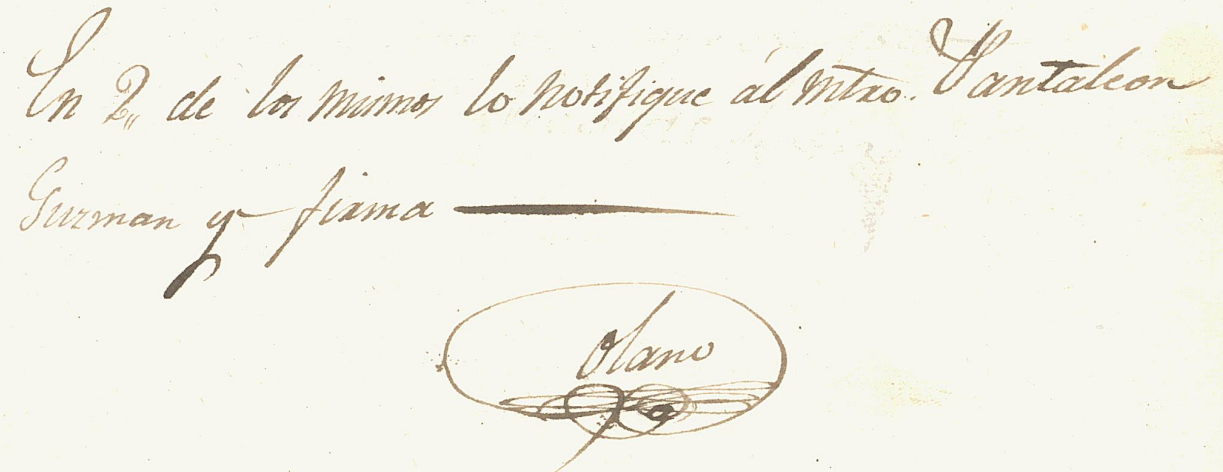 En 2,, de los mismos lo notifique ál Mtro. Pantaleon
Guzman y firma
Olano